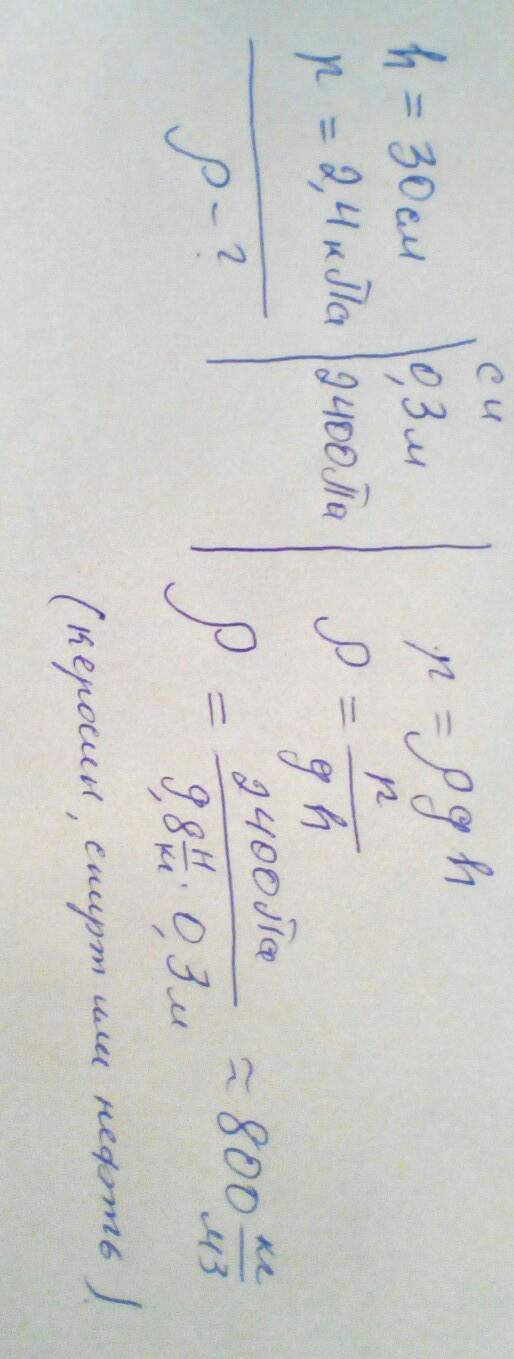 СИ
h = 30 см | 0,3 м
p = 2,4 кПа | 2400 Па
ρ - ?
p = ρgh
ρ = p / gh
ρ = 2400 Па / 9,8 Н/кг · 0,3 м ≈ 800 кг/м3
(керосин, спирт или нефть)